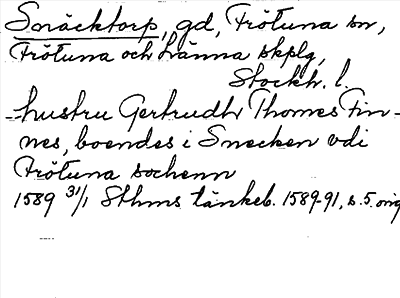 Snäcktorp, gd, Frötuna sn,
Frötuna och Länna skplg,
Stockh. l.
hustru Gertrudh Thomes Fin-
nes, boendes i Snecken vdi
Frötuna sochenn
1589 31/1 Sthms tänkeb. 1589-91, s. 5. orig